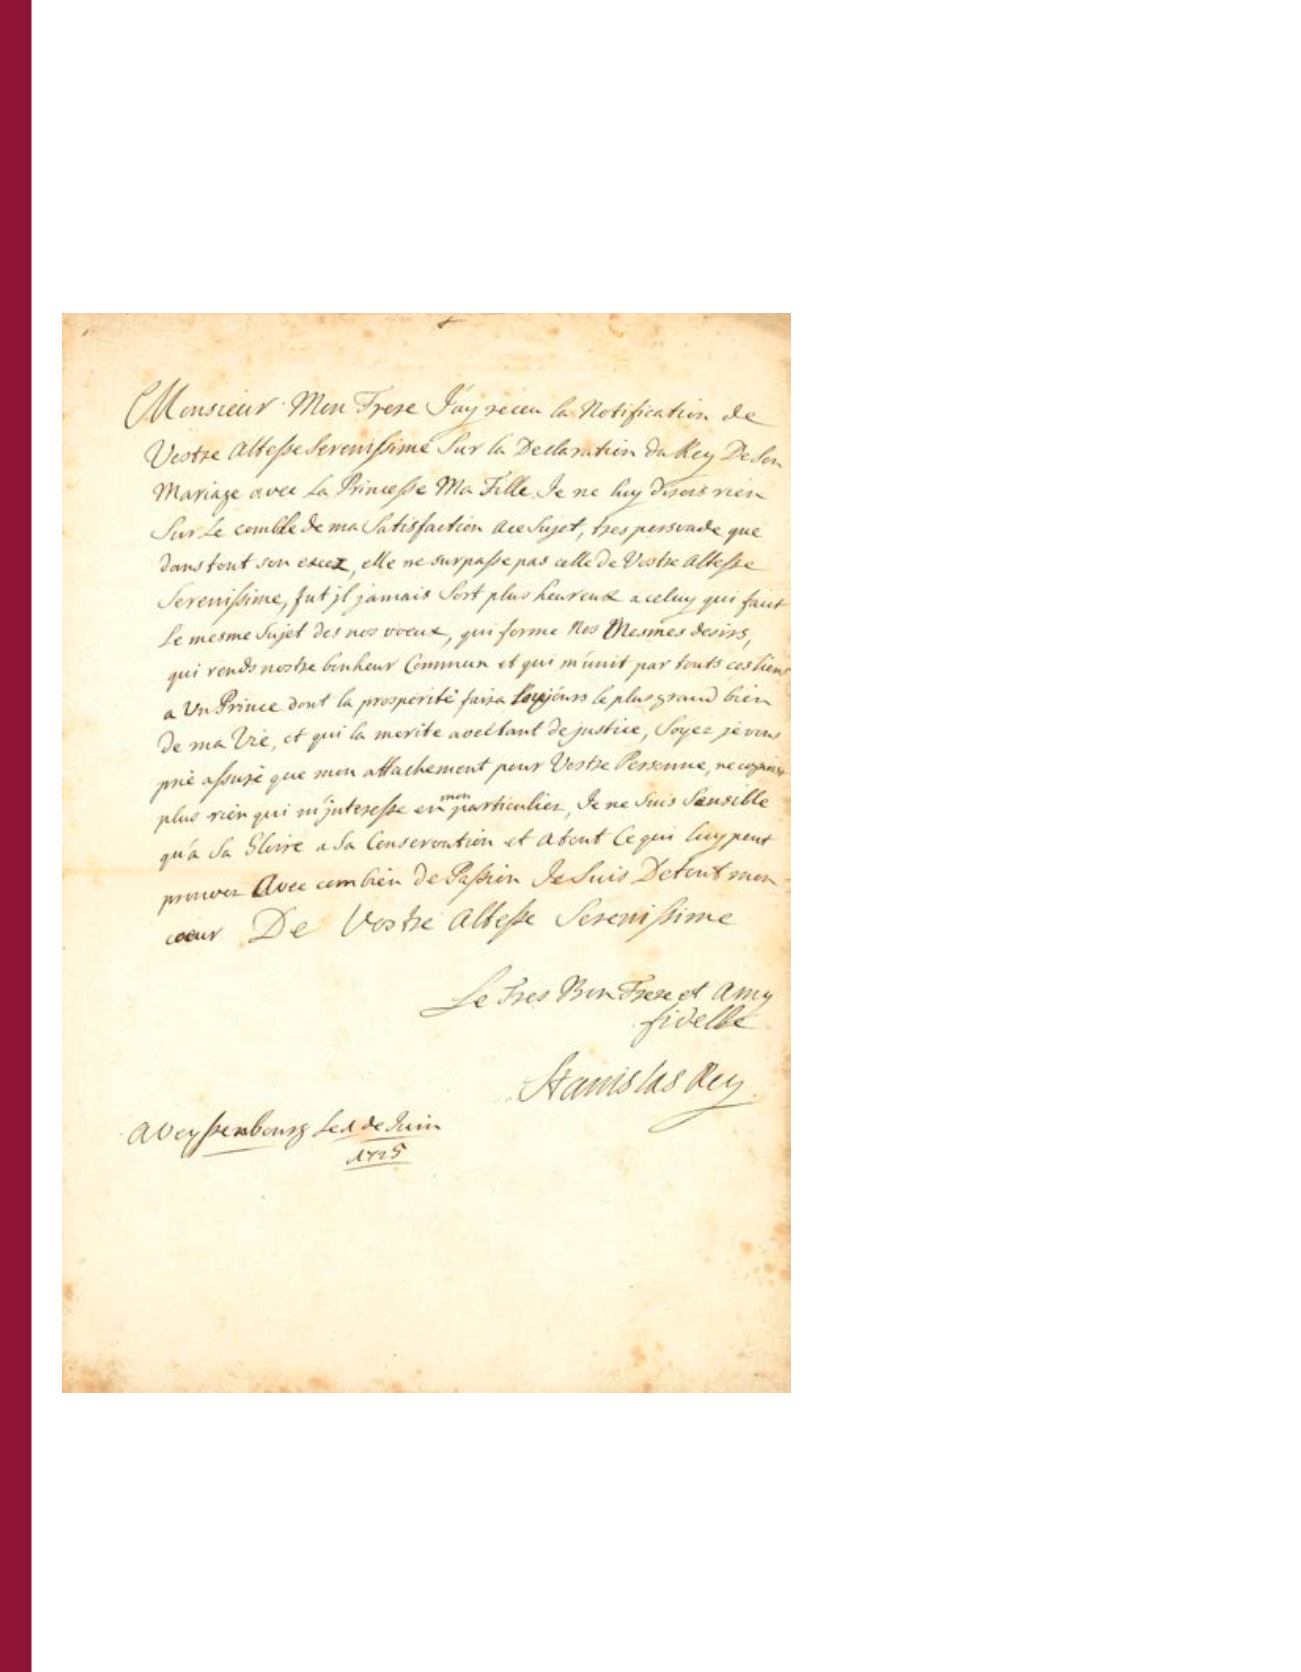 Monsieur Mon Frere J'ay receu la Notification de
Vostre Altesse Serenissime Sur la Declaration du Roy De Son
Mariage avec La Princesse Ma Fille. Je ne luy disois rien
Sur Le comble de ma Satisfaction a ce Sujet, tres persvade que
dans tout son excez, elle ne surpasse pas celle de Vostre Altesse
Serenissime, fut jl jamais Sort plus heureux a celuy qui fait
Le mesme Sujet des nos voeux, qui forme Nos Mesmes desirs,
qui rends nostre bonheur Commun et qui m'unit par touts ces liens
a Un Prince dont la prosperité faira toujours le plus grand bien
De ma Vie, et qui la merite avec tant de justice, Soyez je vous
prie assuré que mon attachement pour Vostre Personne, ne
plus rien qui m'jnteresse en mon particulier, Je ne Suis Sensible
qu'a Sa Gloire a Sa Conservation et a tout Ce qui luy peut
prouver Avec combien de Passion Je Suis De tout mon
coeur De Vostre Altesse Serenissime
Le Tres Bon Frere et Amy
fidelle
Stanislas Roy
a Veyssenbourg Le 1 de Juin
1725